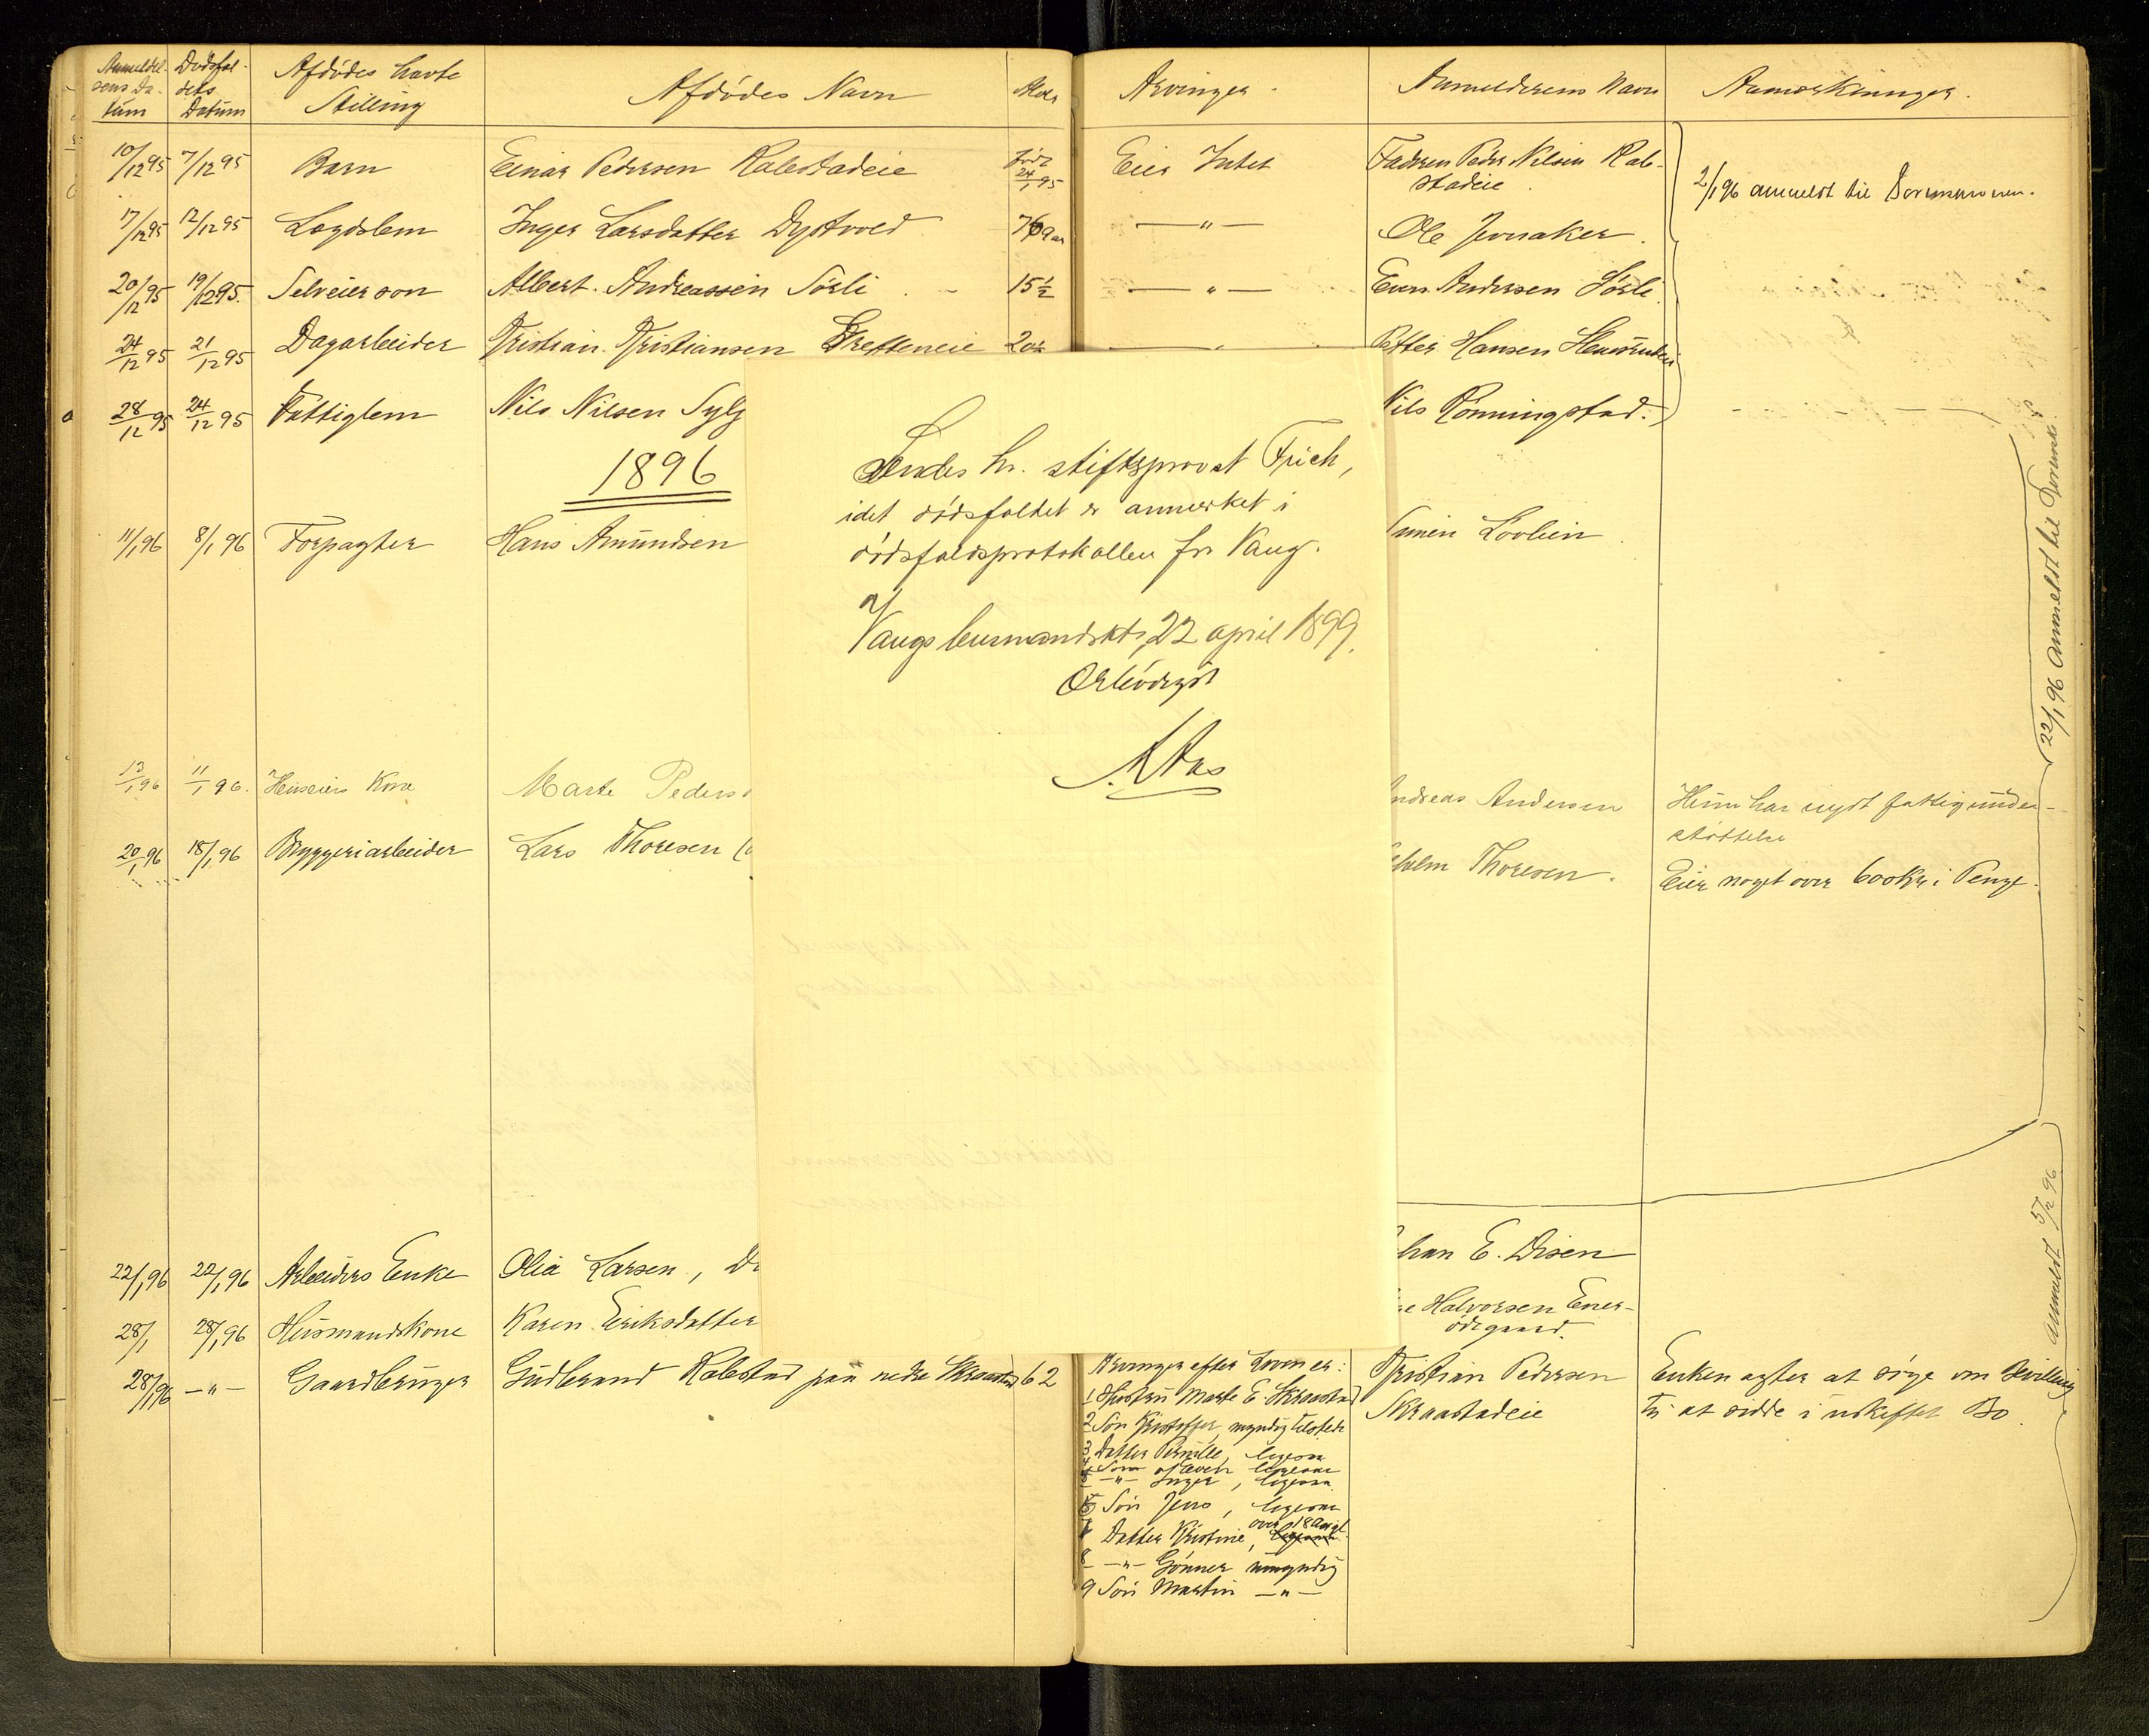 Anmeldel-
sens Da-
tum
Dødsfal-
dets
Datum
Afdødes havte
Stilling
Afdødes Navn
Alder
Arvinger.
Anmelderens Navn
Anmærkninger.
10/12 95 7/12 95 Barn Einar Pedersen Kabstadeie født 24/1 95 Eier Intet Faderen Peder Nilsen Kab-
stadeie
2/1 96 anmeldt til Sorenskriveren.
17/12 95 12/12 95 Lægdslem Inger Larsdatter Dystvold 76 aar —"— Ole Jevnaker.
20/12 95 19/12 95. Selveierson Albert Andreassen Sørli 15½ —"— Even Andersen Sørli.
24/12 95 21/12 95 Dagarbeider Kristian Kristiansen 20½ —"— Petter Hansen
28/12 95 24/12 95 Fattiglem Nils Nilsen Nils Rønningstad.
1896
11/1 96 8/1 96 Forpagter Hans Amundsen Løvlien
Sendes hr. stiftsprovst Frich,
idet dødsfaldet er anmerket i
dødsfaldsprotokollen for Vang.
Vangs lensmandskt, 22 april 1899.
Ærbødigst
22/1 96 anmeldt til Sorenskr.
13/1 96 11/1 96. Huseiers Kone Marte Peders Andreas Andersen Hun har nydt fattigunder-
støttelse
20/1 96 18/1 96 Bryggeriarbeider Lars Thoresen Thoresen. Eier noget over 600 Kr. i Penge.
22/1 96 22/1 96 Arbeiders Enke Olia Larsen, han E. Disen
28/1 28/1 96 Husmandskone Karen Eriksdatter Halvorsen Ener-
ødegaard.
28/1 96 —"— Gaardbruger Gudbrand Kabstad paa nedre Skraastad 62 Arvinger efter Loven er: Kristian Pedersen Enken agter at søge om Bevilling
1 Hustru Marte E. Skraastad Skraastadeie til at sidde i uskiftet Bo.
2 Søn Kristoffer, myndig tilstede
3 Datter Pernille, ligesaa
—"— Inger, ligesaa
Søn Jens, ligesaa
over 18 aar gl.
Datter Kristine, ligesaa
8 —"— Gunner umyndig
9 Søn Martin —"—
anmeldt 5/2 96